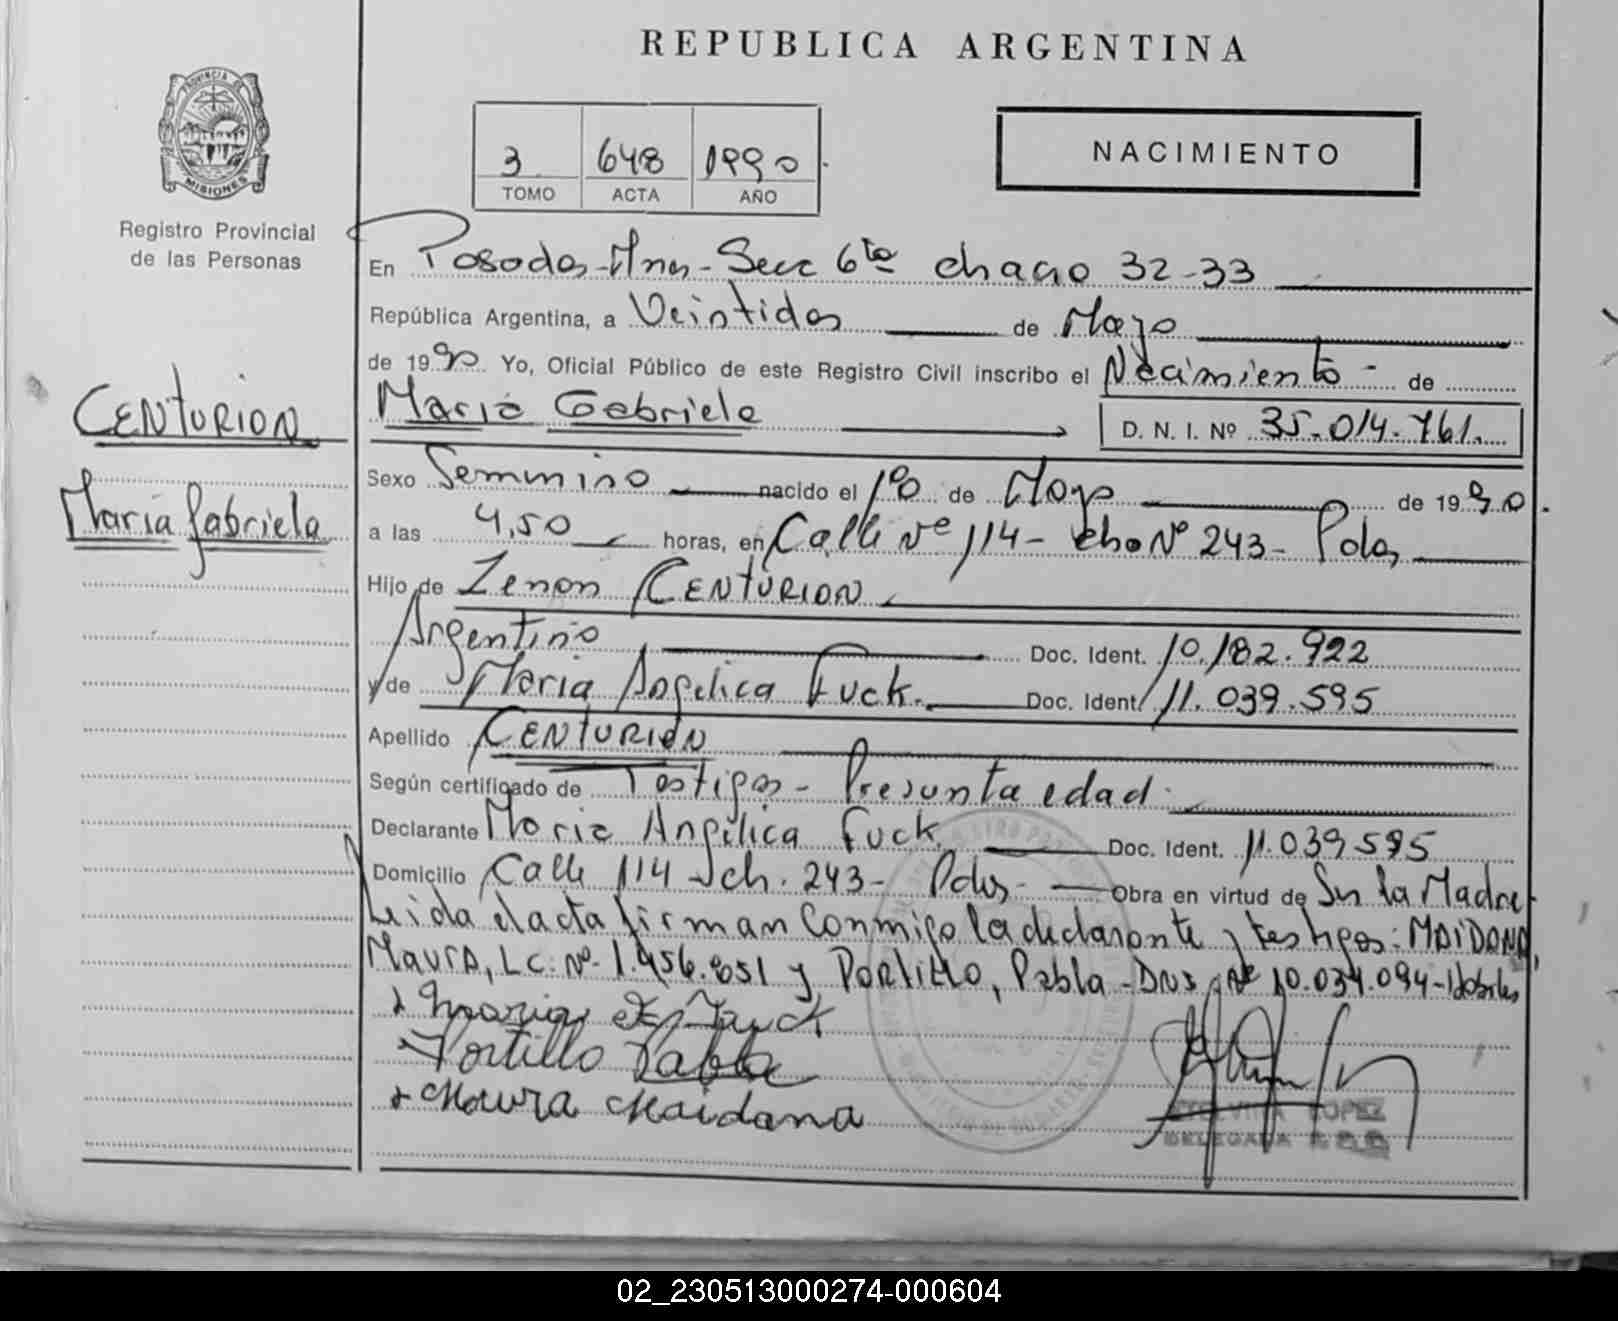 REPUBLICA ARGENTINA
PROVINCIA DE
MISIONES
Registro Provincial
de las Personas
3 648 1990
TOMO ACTA AÑO
NACIMIENTO
En Posadas-Mnes-Secc 6ta chacra 32-33
República Argentina, a Veintidos de Mayo
de 1990 Yo, Oficial Público de este Registro Civil inscribo el Nacimiento - de
CENTURION
María Gabriela
Maria Gabriela
D. N. I. Nº 35.014.761.
Sexo Femenino nacido el 1º de Mayo de 1990.
a las 4,50 horas, en Calle Nº 114- cha Nº 243- Pdas
Hijo de Zenon CENTURION
Argentino Doc. Ident. 10.182.922
y de Maria Angelica Fuck. Doc. Ident. 11.039.595
Apellido CENTURION
Según certificado de Testigos - Presunta edad.
Declarante Maria Angelica Fuck Doc. Ident. 11.039595
Domicilio Calle 114 - ch. 243- Pdas- Obra en virtud de Ser la Madre
Leida el acta firman conmigo la declarante y testigos: MAIDANA,
MAURA, L.C. Nº 1.956.851 y PORTILLO, Pabla - DNI Nº 10.034.094-Hábiles
Portillo Pabla
Maura Maidana
LOPEZ
DELEGADA
02_230513000274-000604